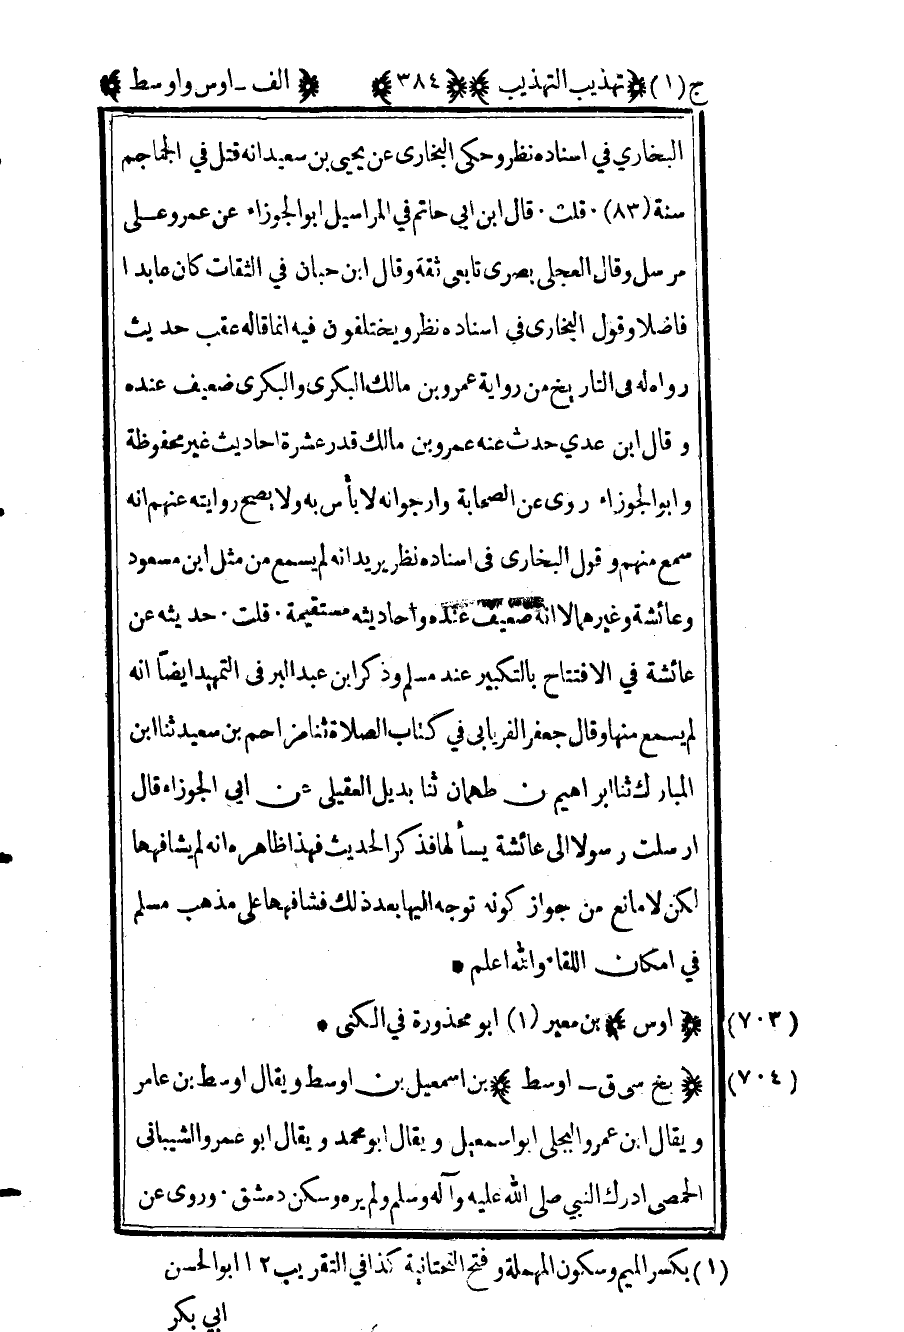 ج (١) ﴿ تهذيب التهذيب ﴾ ﴿ ٣٨٤ ﴾ ﴿ الف ـ اوس واوسط ﴾
البخاري في اسناده نظر وحكى البخارى عن يحيى بن سعيد انه قتل في الجماجم
سنة (٨٣) · قلت · قال ابن ابي حاتم في المراسيل ابوالجوزاء عن عمر وعلى
مرسل وقال العجلى بصرى تابعى ثقة وقال ابن حبان في الثقات كان عابدا
فاضلا وقول البخارى في اسناده نظر ويختلفون فيه انما قاله عقب حديث
رواه له فى التاريخ من رواية عمرو بن مالك البكرى والبكرى ضعيف عنده
و قال ابن عدي حدث عنه عمرو بن مالك قدر عشرة احاديث غير محفوظة
وابوالجوزاء روى عن الصحابة وارجو انه لا بأس به ولا يصح روايته عنهم انه
سمع منهم و قول البخارى فى اسناده نظر يريد انه لم يسمع من مثل ابن مسعود
وعائشة وغيرهما لا انه ضعيف عنده واحاديثه مستقيمة · قلت · حديثه عن
عائشة في الافتتاح بالتكبير عند مسلم وذكر ابن عبدالبر فى التمهيد ايضاً انه
لم يسمع منها وقال جعفر الفريابى في كتاب الصلاة ثنا مزاحم بن سعيد ثنا ابن
المبارك ثنا ابراهيم بن طهمان ثنا بديل العقيلى عن ابي الجوزاء قال
ارسلت رسولا الى عائشة يسألها فذكر الحديث فهذا ظاهره انه لم يشافهها
لكن لا مانع من جواز كونه توجه اليها بعد ذلك فشافهها على مذهب مسلم
في امكان اللقاء والله اعلم •
(٧٠٣) ﴿ اوس ﴾ بن معير (١) ابو محذورة في الكنى •
(٧٠٤) ﴿ بخ سى ق ـ اوسط ﴾ بن اسمعيل بن اوسط ويقال اوسط بن عامر
و يقال ابن عمرو البجلى ابو اسمعيل و يقال ابو محمد و يقال ابو عمرو الشيبانى
الحمصى ادرك النبي صلى الله عليه وآله وسلم ولم يره وسكن دمشق · وروى عن
(١) بكسر الميم وسكون المهملة و فتح التحتانية كذا في التقريب ١٢ ابوالحسن
ابي بكر